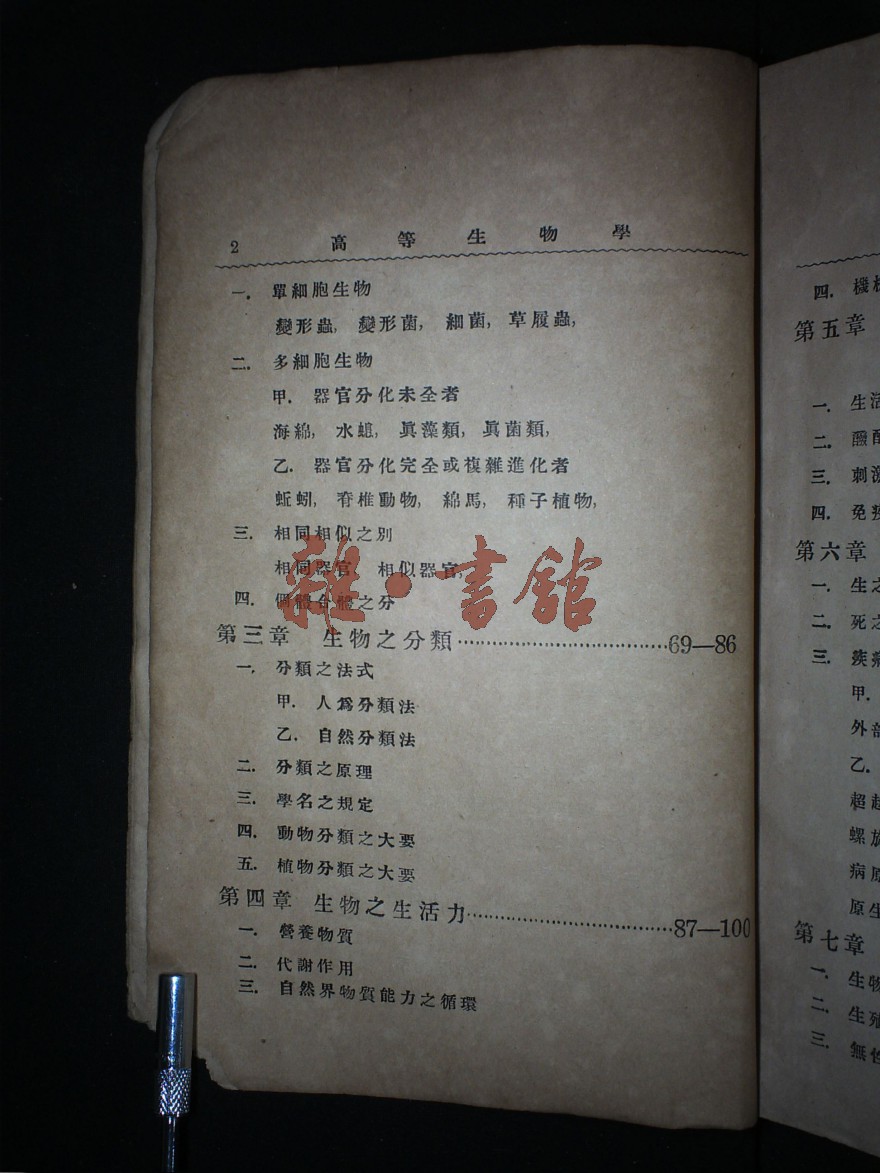 2 高等生物學
一. 單細胞生物
變形蟲, 變形菌, 細菌, 草履蟲,
二. 多細胞生物
甲. 器官分化未全者
海綿, 水螅, 眞藻類, 眞菌類,
乙. 器官分化完全或複雜進化者
蚯蚓, 脊椎動物, 綿馬, 種子植物,
三. 相同相似之別
相同器官, 相似器官,
四. 個體合體之分
雜·書館
第三章 生物之分類……………………………69—86
一. 分類之法式
甲. 人爲分類法
乙. 自然分類法
二. 分類之原理
三. 學名之規定
四. 動物分類之大要
五. 植物分類之大要
第四章 生物之生活力……………………………87—100
一. 營養物質
二. 代謝作用
三. 自然界物質能力之循環
四. 機
第五章
一. 生活
二. 醱
三. 刺激
四. 免疫
第六章
一. 生之
二. 死之
三. 疾病
甲.
外部
乙.
超
螺旋
病原
原生
第七章
一. 生物
二. 生殖
三. 無性